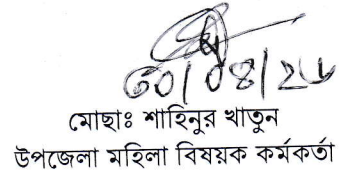 ৩০/০৪/২৬
মোছাঃ শাহিনুর খাতুন
উপজেলা মহিলা বিষয়ক কর্মকর্তা